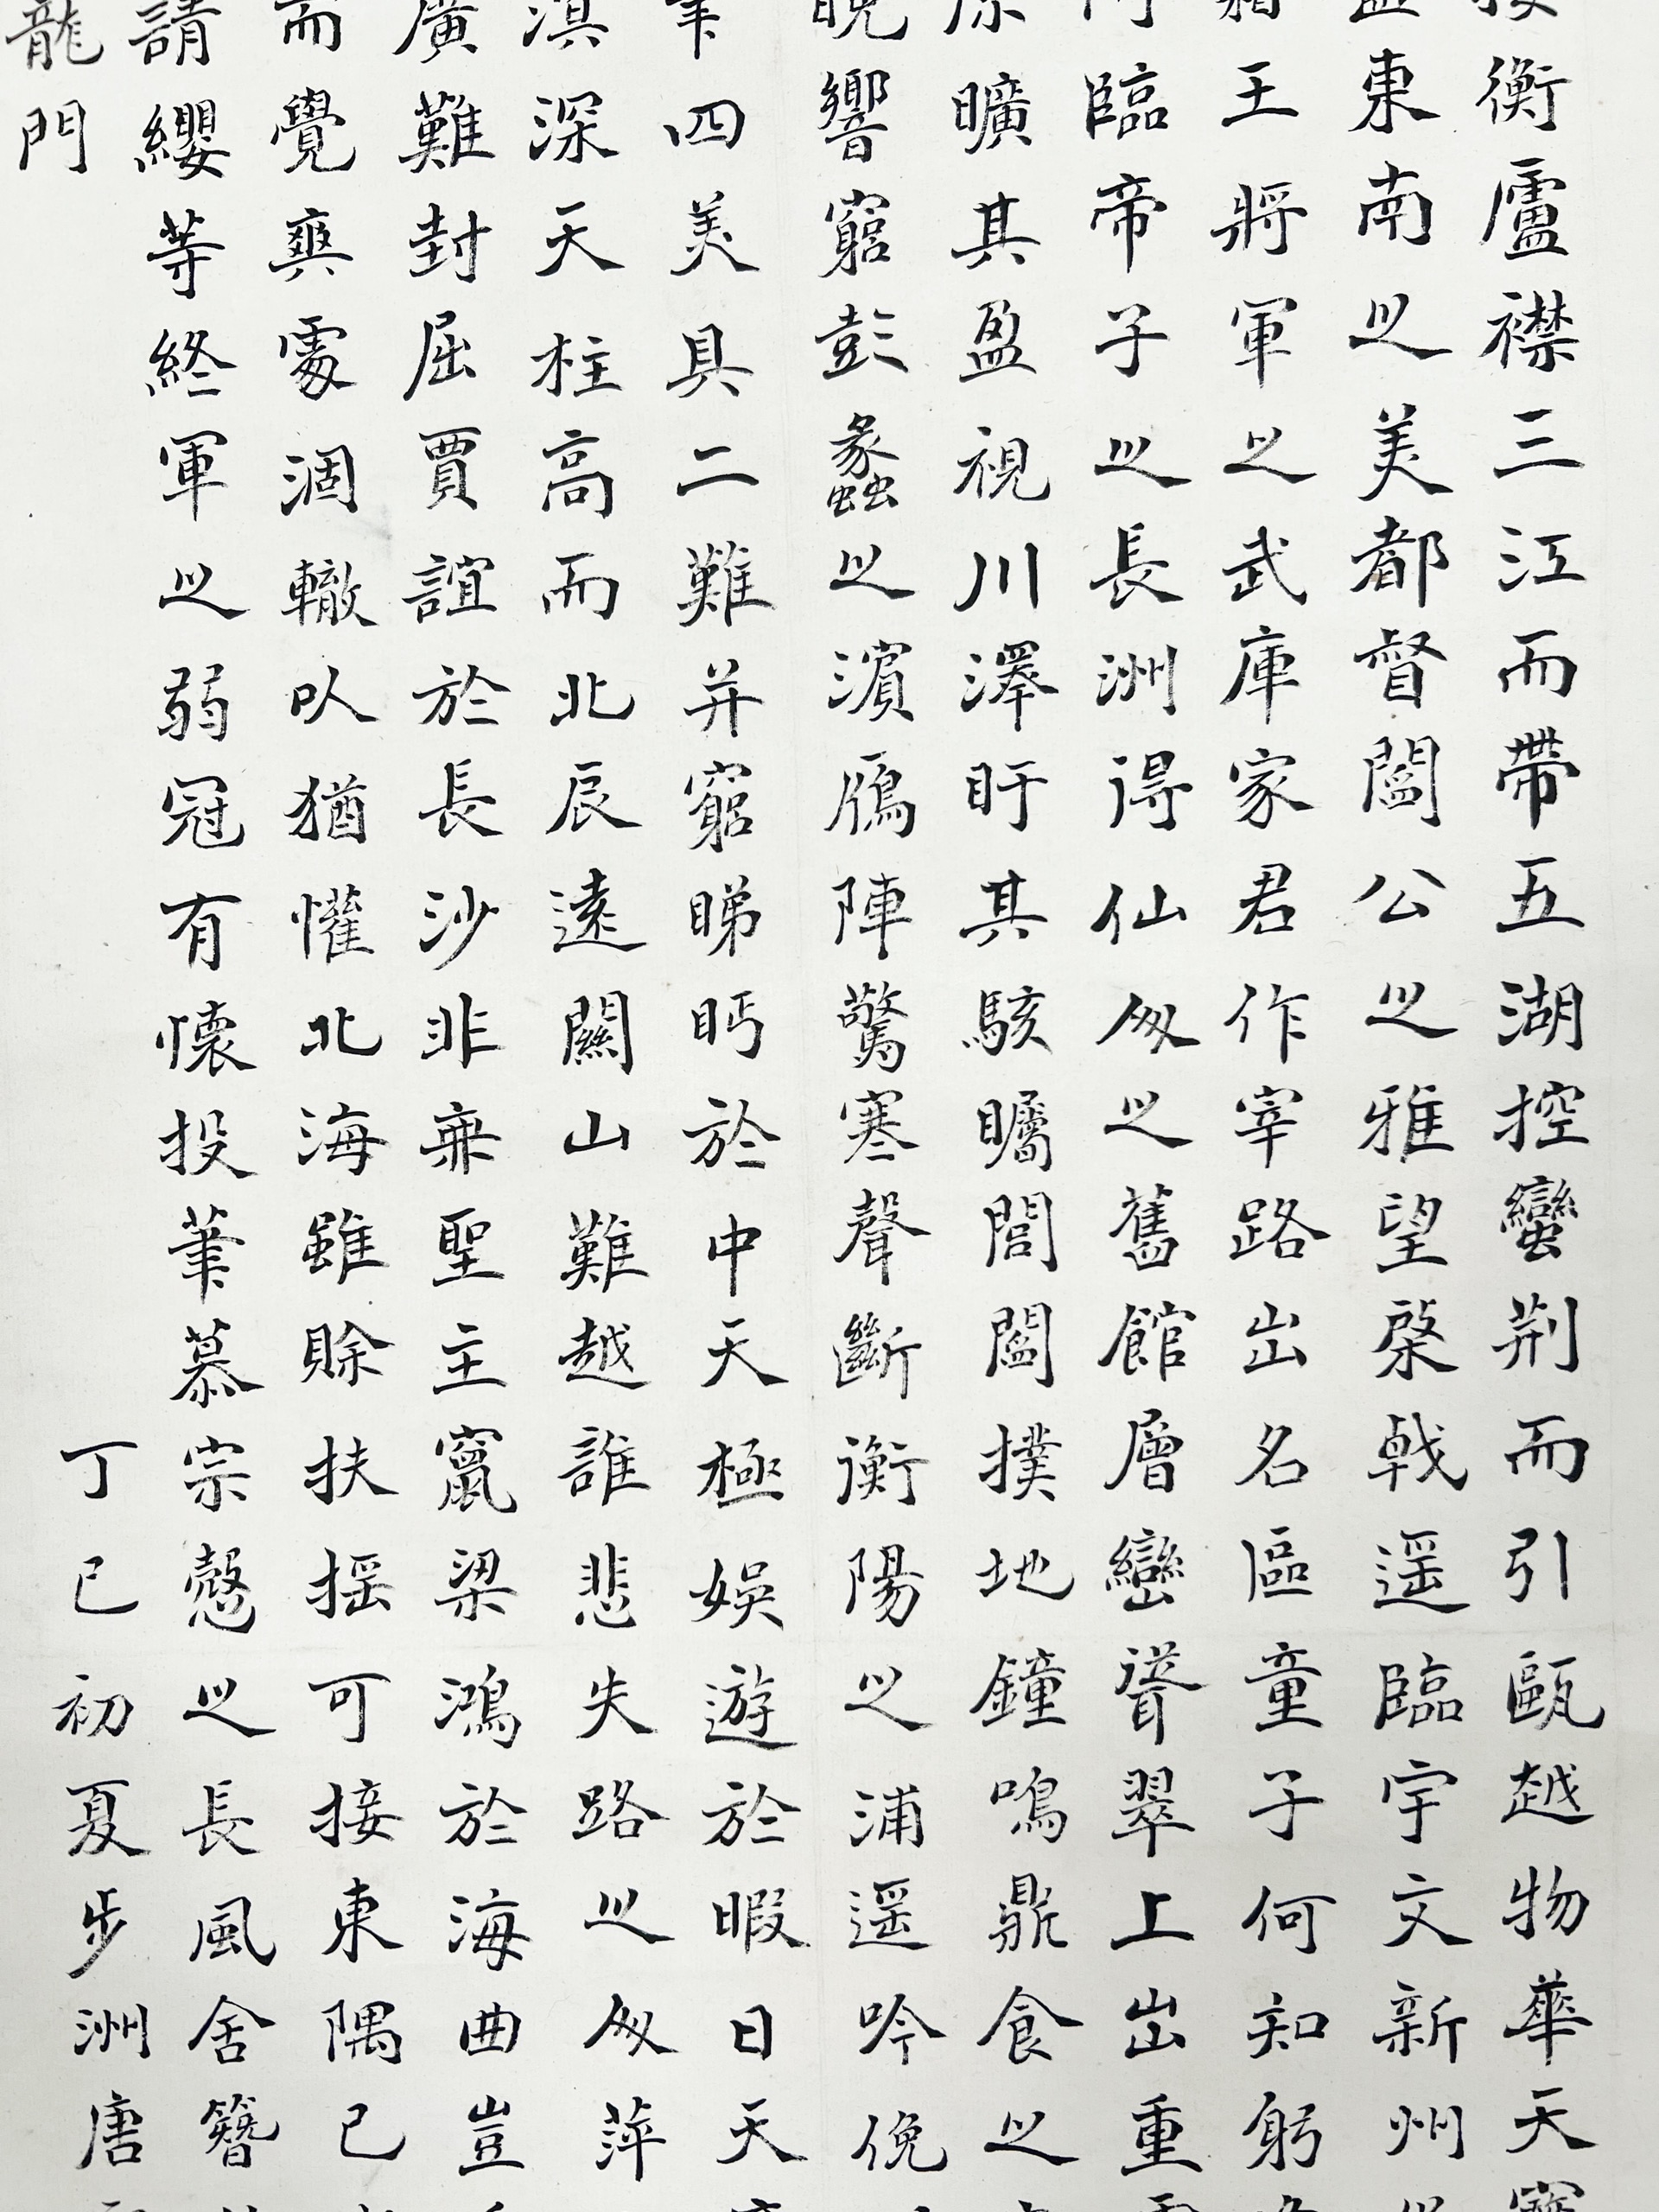 衡廬襟三江而帶五湖控蠻荆而引甌越物華天寶
東南之美都督閻公之雅望棨戟遥臨宇文新州之
王將軍之武庫家君作宰路出名區童子何知躬
臨帝子之長洲得仙人之舊館層巒聳翠上出重
原曠其盈視川澤盱其駭矚閭閻撲地鐘鳴鼎食之
晚響窮彭蠡之濱鴈陣驚寒聲斷衡陽之浦遥吟俛
四美具二難并窮睇眄於中天極娛遊於暇日天
溟深天柱高而北辰遠關山難越誰悲失路之人萍
廣難封屈賈誼於長沙非無聖主竄梁鴻於海曲豈
而覺爽處涸轍以猶懽北海雖賒扶揺可接東隅已
請纓等終軍之弱冠有懷投筆慕宗愨之長風舍簪
龍門
丁巳初夏步洲唐